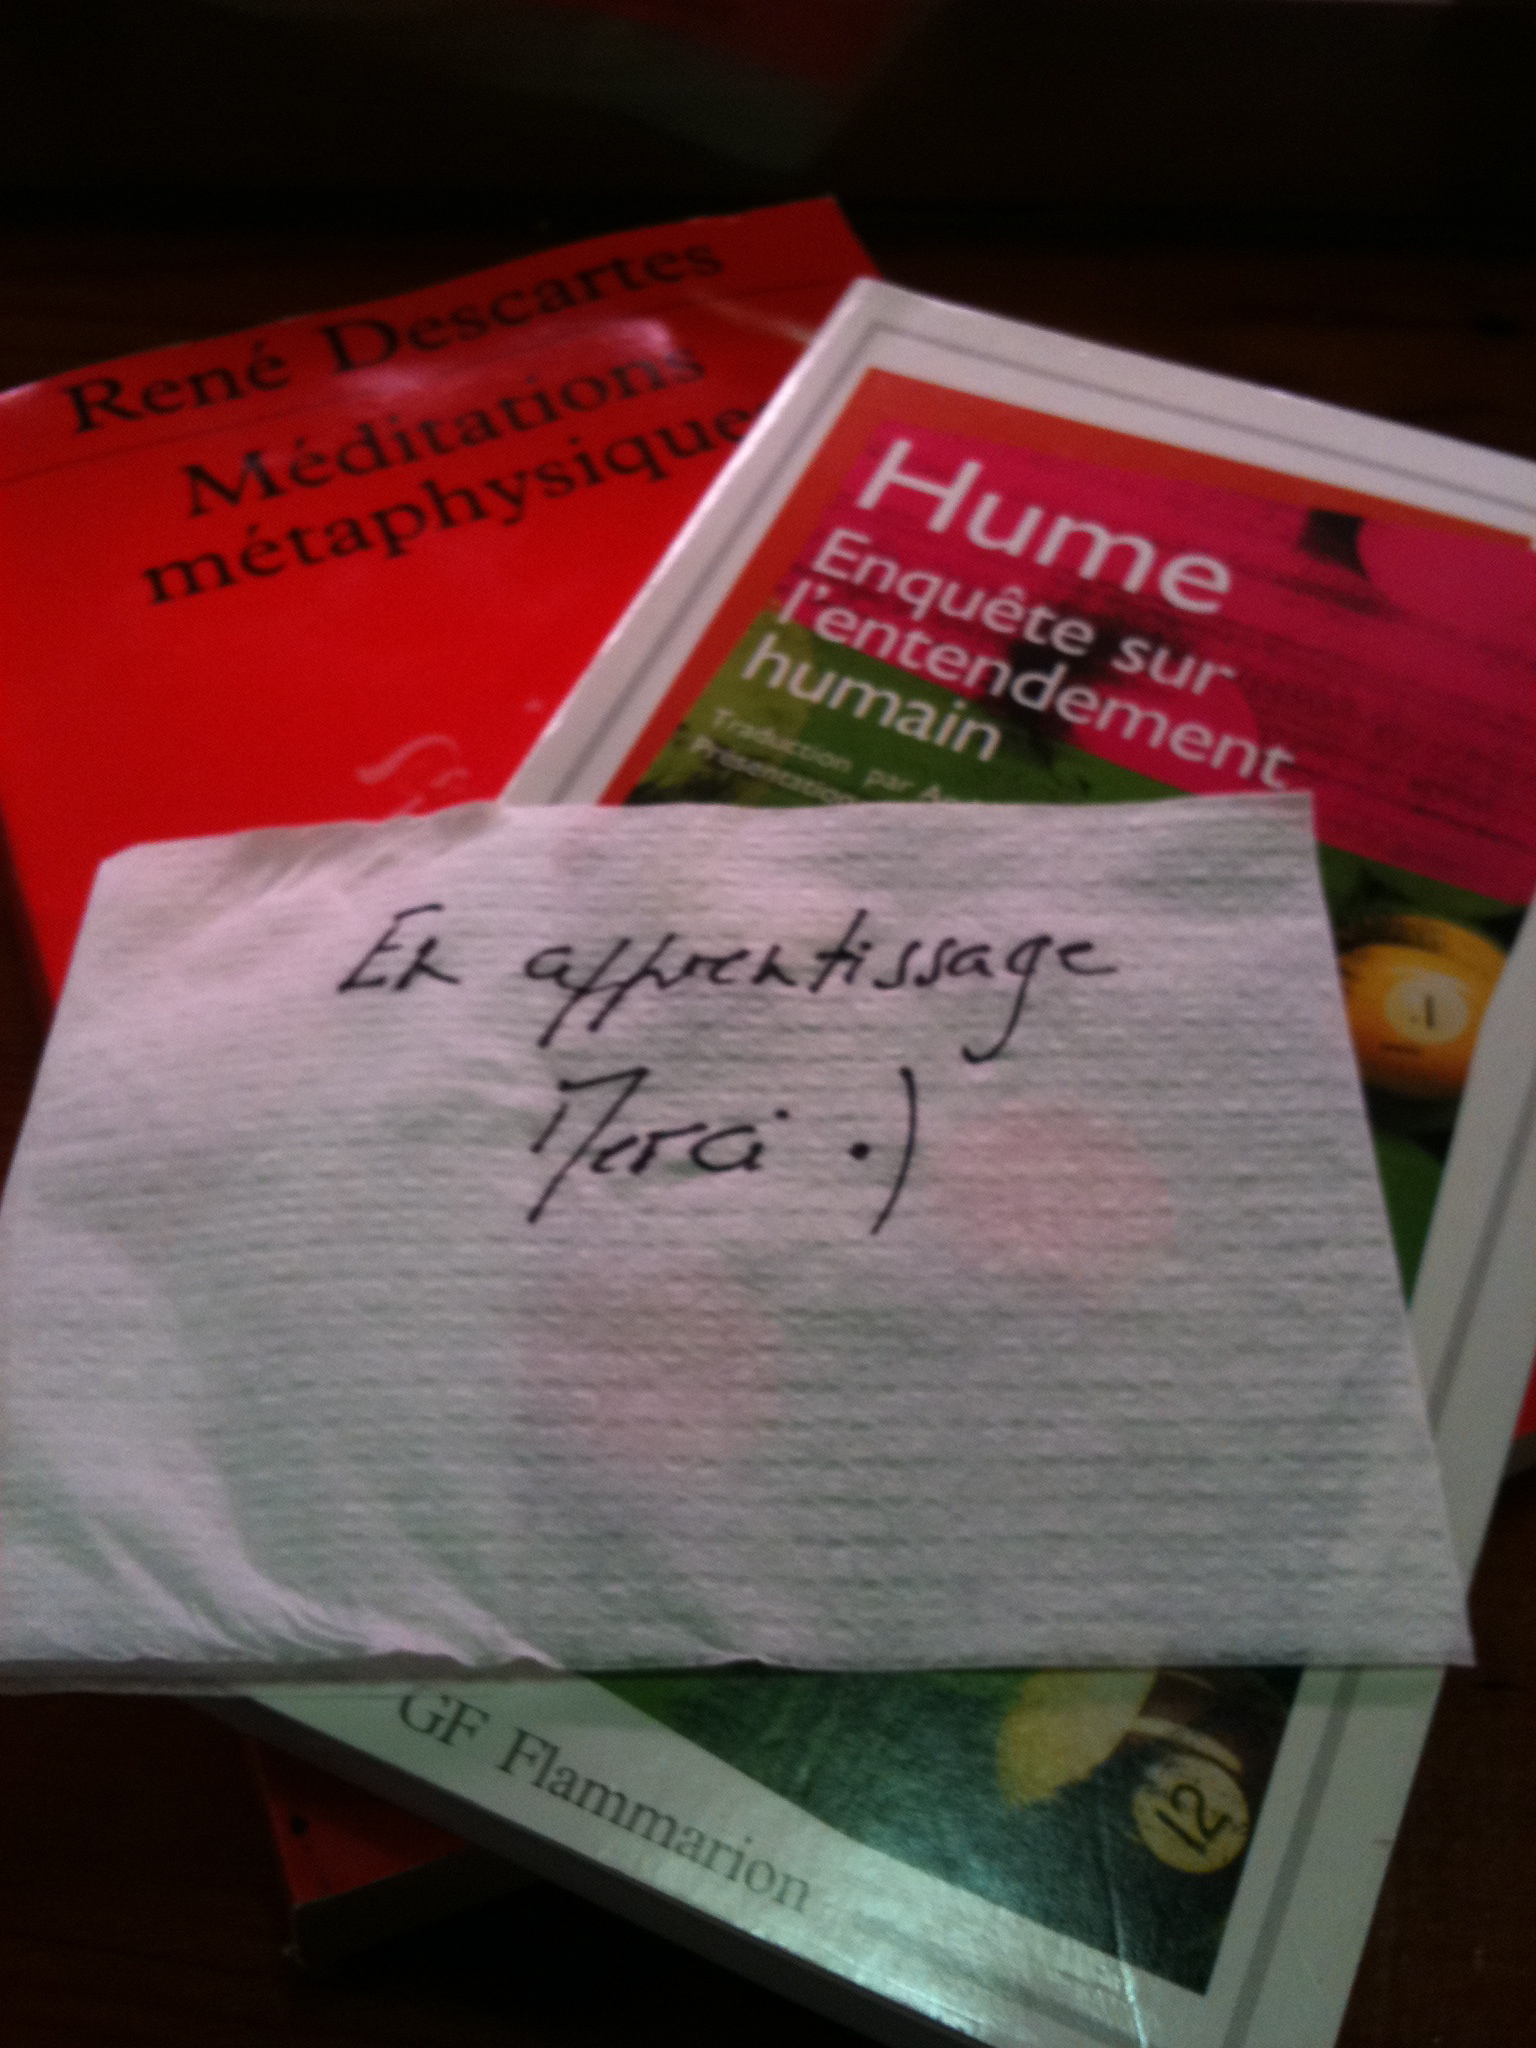 René Descartes
Méditations
métaphysique
Hume
Enquête sur
l'entendement
humain
Traduction par
Présentation
En apprentissage
Merci :)
1
GF Flammarion
12